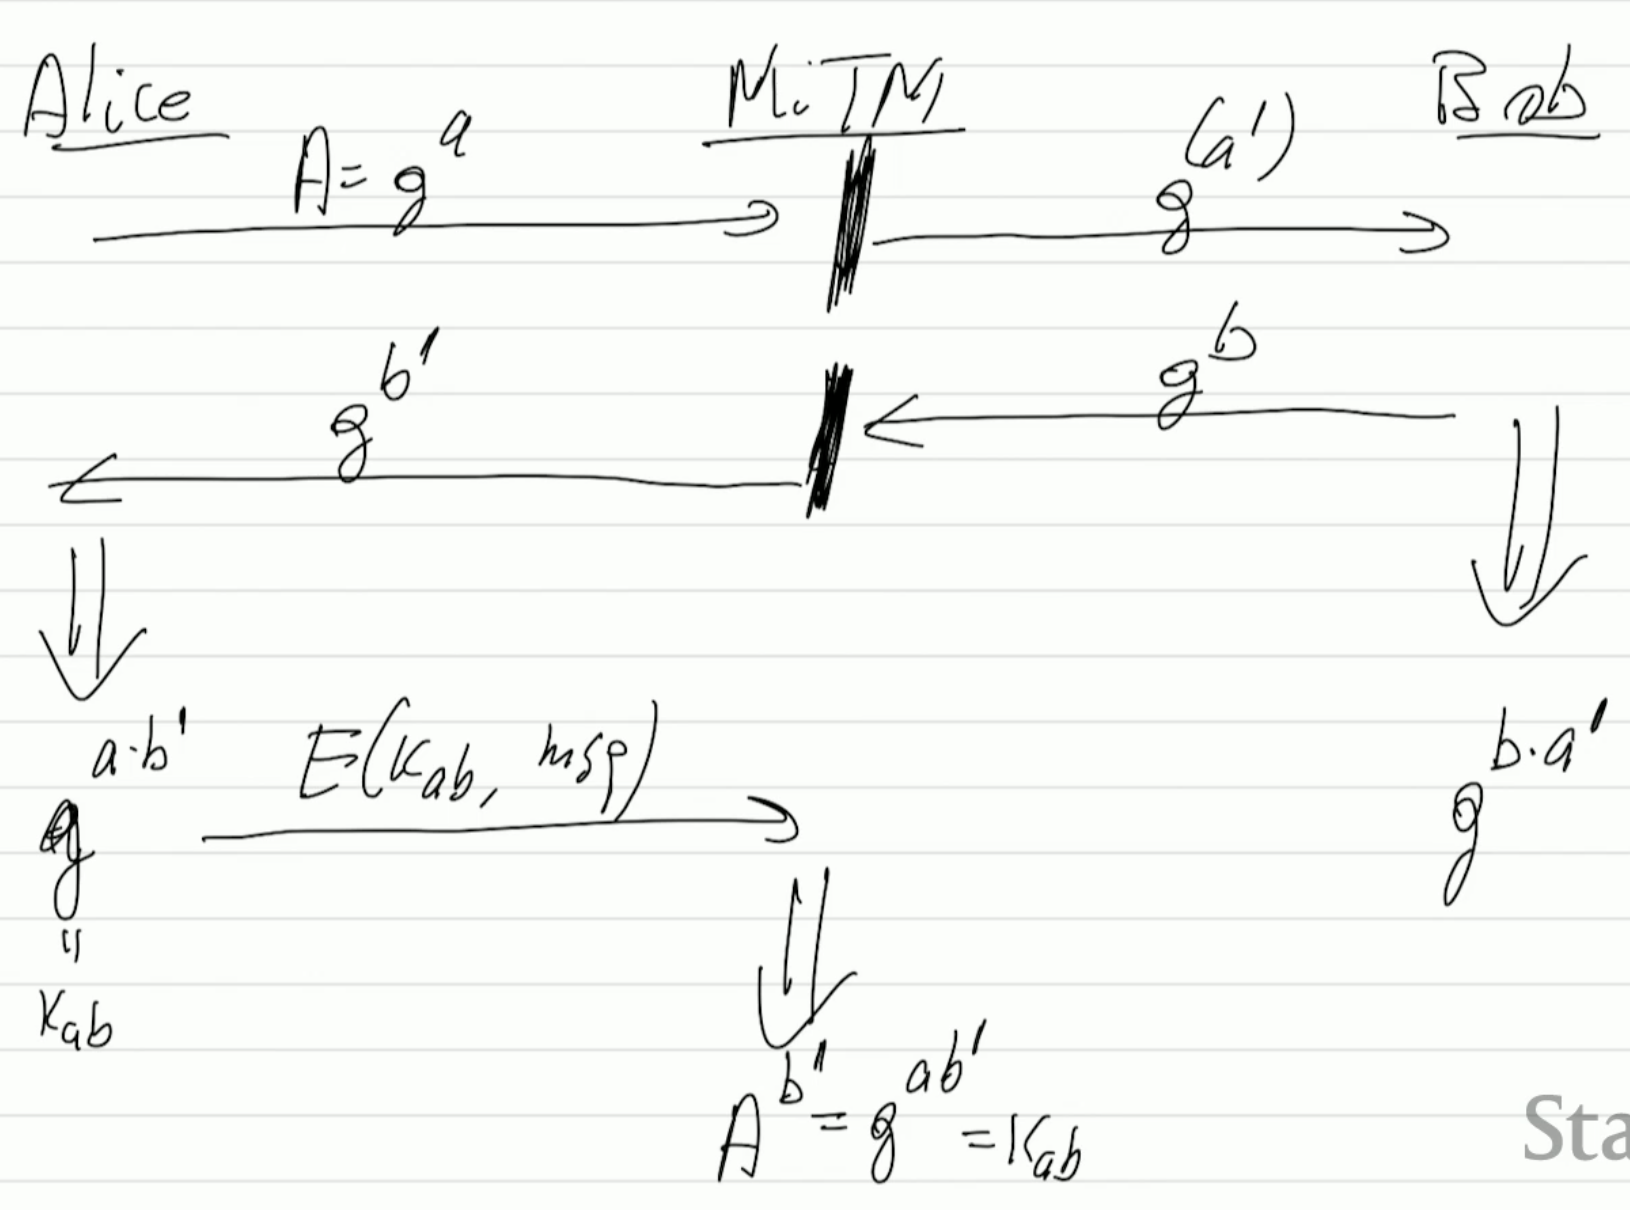 Alice MiTM Bob
A = g^a g^(a')
g^b' g^b
g^a·b' E(Kab, msg) g^b·a'
"
Kab
A^b' = g^ab' = Kab
Sta